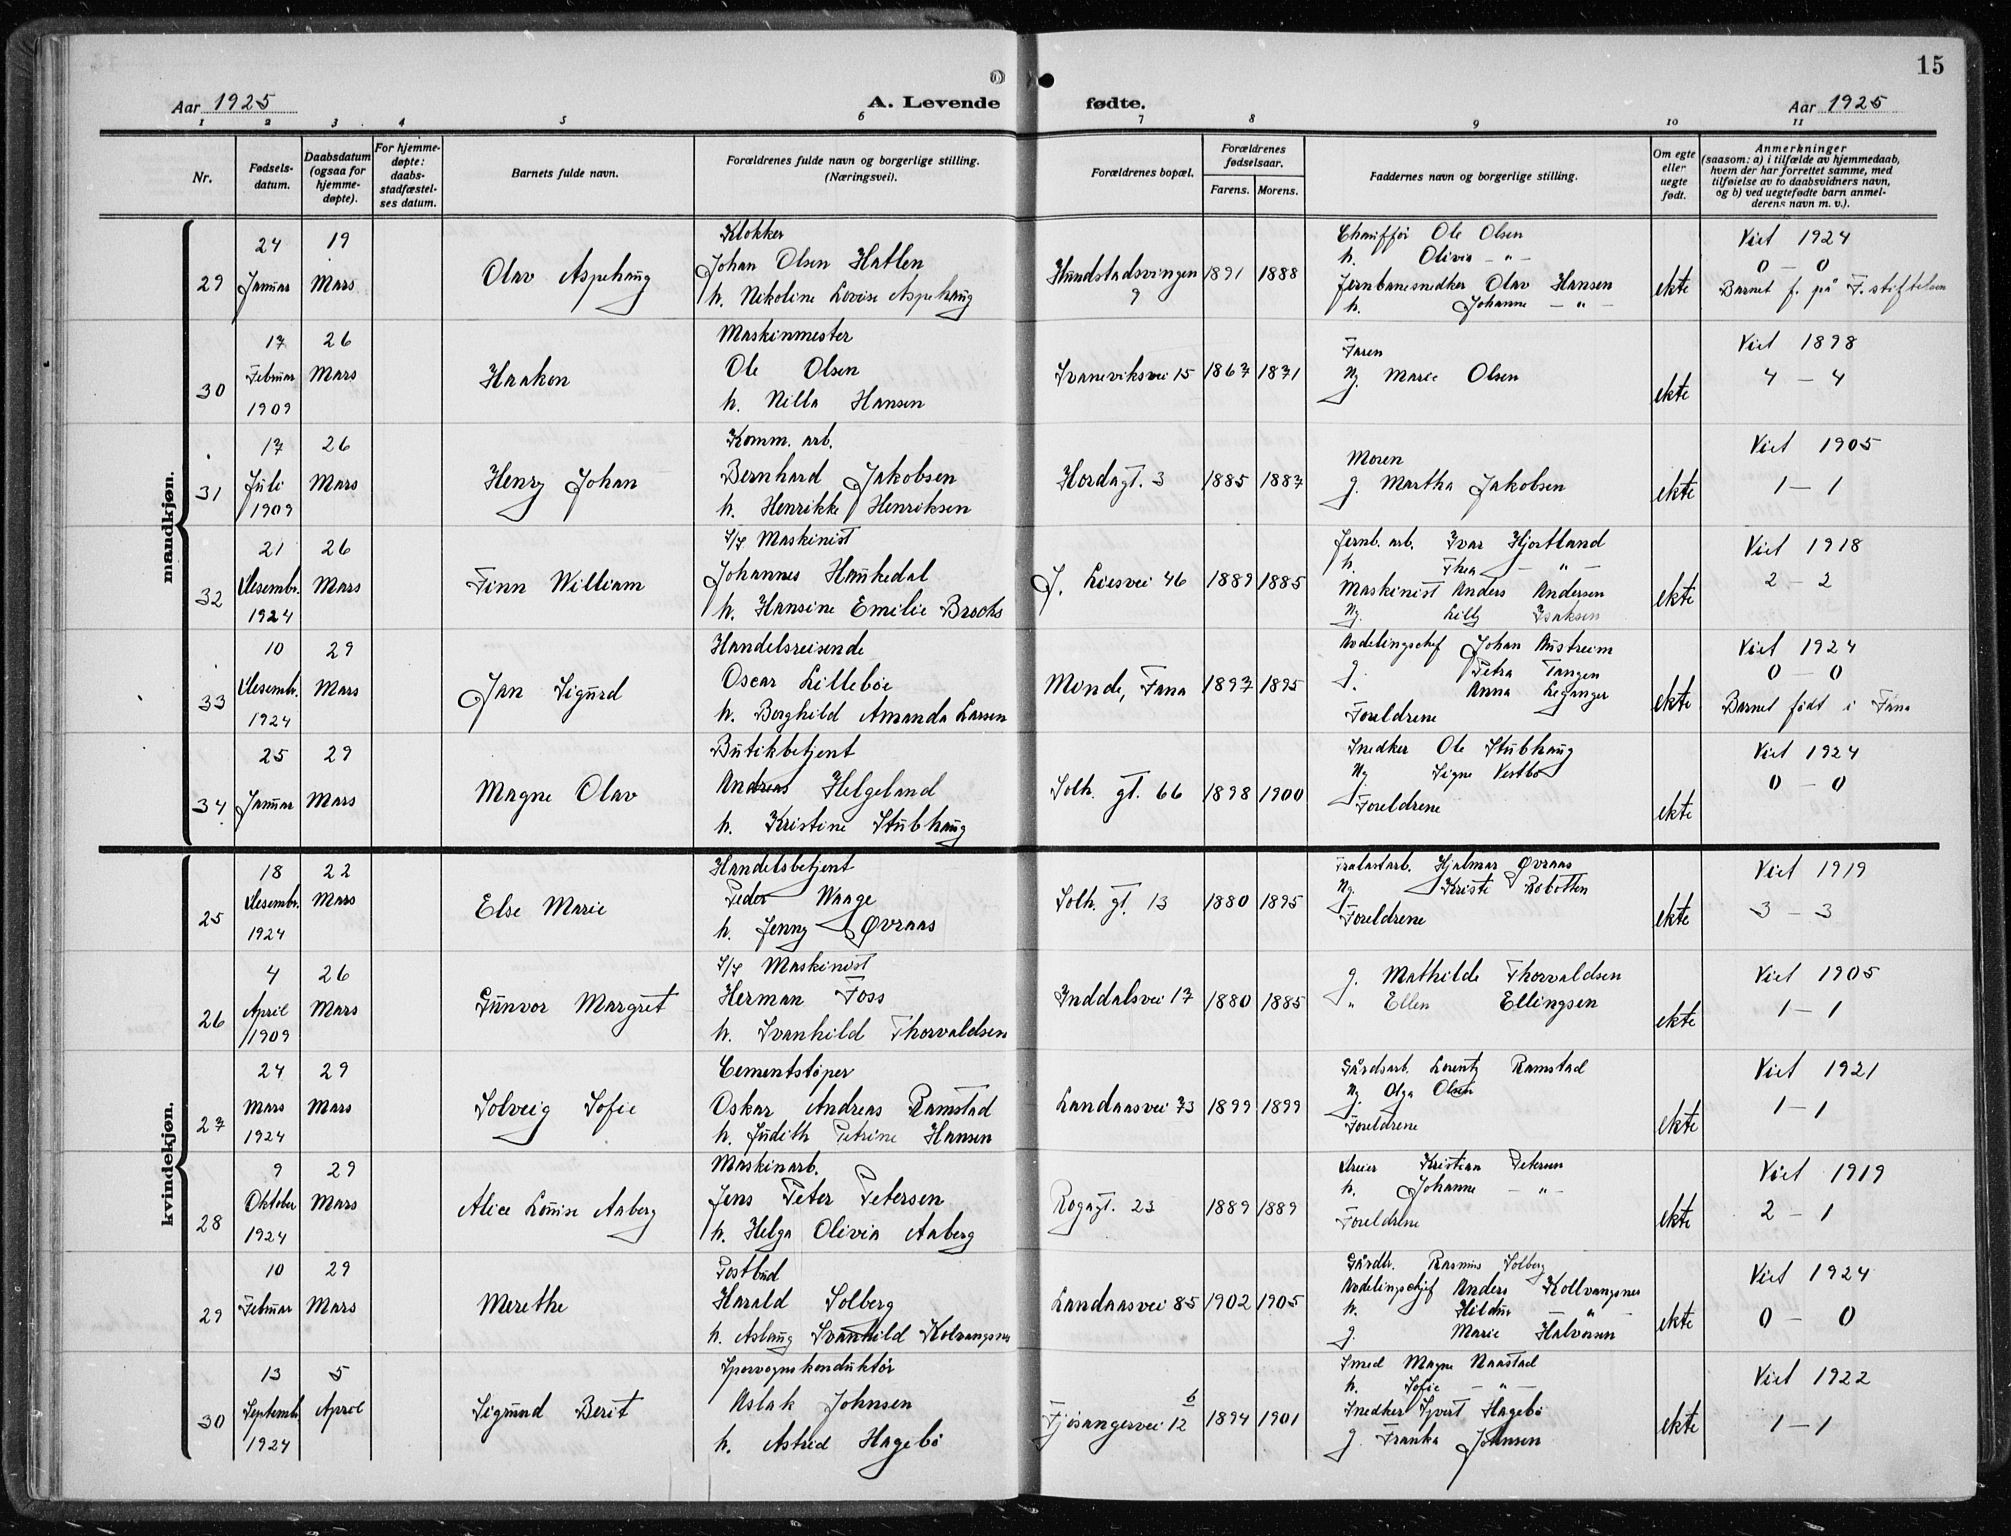 15
Aar 1925
A. Levende fødte.
Aar 1925
1 2 3 4 5 6 7 8 9 10 11
Nr.
Fødsels-
datum.
Daabsdatum
(ogsaa for
hjemme-
døpte).
For hjemme-
døpte:
daabs-
stadfæstel-
ses datum.
Barnets fulde navn.
Forældrenes fulde navn og borgerlige stilling.
(Næringsvei).
Forældrenes bopæl.
Forældrenes
fødselsaar.
Farens. Morens.
Faddernes navn og borgerlige stilling.
Om egte
eller
uegte
født.
Anmerkninger
(saasom: a) i tilfælde av hjemmedaab,
hvem der har forrettet samme, med
tilføielse av to daabsvidners navn,
og b) ved uegtefødte barn anmel-
derens navn m. v.).
mandkjøn.
29
24
Januar
19
Mars
Olav Aspehaug
Klokker
Johan Olsen Hatlen
h. Nikoline Lovise Aspehaug
Hunstadsvingen
9
1891 1888
Chauffør Ole Olsen
h. Olivia — " —
Jernbanesnedker Olav Hansen
h. Johanne — " —
ekte
Viet 1924
0 — 0
Barnet f. på F. stiftelsen
30
17
Februar
1909
26
Mars
Haakon
Maskinmester
Ole Olsen
h. Nilla Hansen
Svaneviksvei 15
1867 1871
Faren
Ug. Marie Olsen
ekte
Viet 1898
4 — 4
31
17
Juli
1909
26
Mars
Henry Johan
Komm. arb.
Bernhard Jakobsen
h. Henrikke Henriksen
Hordagt. 3
1885 1887
Moren
g. Martha Jakobsen
ekte
Viet 1905
1 — 1
32
21
Desembr.
1924
26
Mars
Finn William
S/S Maskinist
Johannes Haukedal
h. Hansine Emilie Brochs
J. Liesvei 46
1889 1885
Jernb. arb. Ivar Hjortland
h. Thea — " —
Maskinist Anders Andersen
Ug. Lilly Isaksen
ekte
Viet 1918
2 — 2
33
10
Desembr.
1924
29
Mars
Jan Sigurd
Handelsreisende
Oscar Lillebøe
h. Borghild Amanda Larsen
Minde, Fana
1897 1895
Avdelingschef Johan Austreim
g. Petra Tangen
g. Anna Leganger
Foreldrene
ekte
Viet 1924
0 — 0
Barnet født i Fana
34
25
Januar
29
Mars
Magne Olav
Butikbetjent
Andreas Helgeland
h. Kristine Stubhaug
Solh. gt. 66
1898 1900
Snedker Ole Stubhaug
Ug. Signe Vestbø
Foreldrene
ekte
Viet 1924
0 — 0
kvindekjøn.
25
18
Desembr.
1924
22
Mars
Else Marie
Handelsbetjent
Peder Waage
h. Jenny Øvraas
Solh. gt. 13
1880 1895
Hjalmar Øvraas
Ug. Kristi
Foreldrene
ekte
Viet 1919
3 — 3
26
4
April
1909
26
Mars
Gunvor Margret
S/S Maskinist
Herman Foss
h. Svanhild Thorvaldsen
Inddalsvei 17
1880 1885
g. Mathilde Thorvaldsen
" Ellen Ellingsen
ekte
Viet 1905
1 — 1
27
24
Mars
1924
29
Mars
Solveig Sofie
Cementstøper
Oskar Andreas Ramstad
h. Judith Petrine Hansen
Landaasvei 73
1899 1899
Gårdsarb. Lorentz Ramstad
Ug. Olga Olsen
Foreldrene
ekte
Viet 1921
1 — 1
28
9
Oktober
1924
29
Mars
Alice Louise Aaberg
Maskinarb.
Jens Peter Petersen
h. Helga Olivia Aaberg
Rogagt. 23
1889 1889
Dreier Kristian Petersen
h. Johanne — " —
Foreldrene
ekte
Viet 1919
2 — 1
29
10
Februar
29
Mars
Merethe
Postbud
Harald Solberg
h. Aslaug Svanhild Kolvangsnes
Landaasvei 85
1902 1905
Gårdbr. Rasmus Solberg
Avdelingschef Anders Kollvangsnes
h. Hildur — " —
g. Marie Halvorsen
ekte
Viet 1924
0 — 0
30
13
Septembr.
1924
5
April
Sigmund Berit
Sporvognskonduktør
Aslak Johnsen
h. Astrid Hagebø
Fjøsangervei 12 b
1894 1901
Smed Magne Naastad
h. Sofie — " —
Snedker Syvert Hagebø
g. Franka Johnsen
ekte
Viet 1922
1 — 1